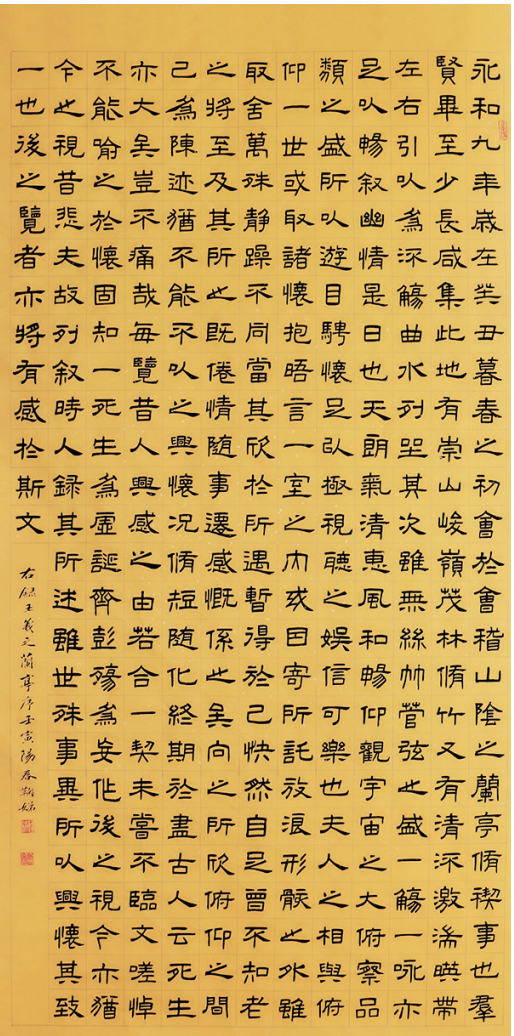 永和九年歲在癸丑暮春之初會於會稽山陰之蘭亭脩禊事也羣
賢畢至少長咸集此地有崇山峻嶺茂林脩竹又有清流激湍暎帶
左右引以為流觴曲水列坐其次雖無絲竹管弦之盛一觴一詠亦
足以暢叙幽情是日也天朗氣清惠風和暢仰觀宇宙之大俯察品
類之盛所以遊目騁懷足以極視聽之娛信可樂也夫人之相與俯
仰一世或取諸懷抱晤言一室之內或因寄所託放浪形骸之外雖
取舍萬殊静躁不同當其欣於所遇暫得於己快然自足曾不知老
之將至及其所之既倦情随事遷感慨係之矣向之所欣俯仰之間
已為陳迹猶不能不以之興懷況脩短随化終期於盡古人云死生
亦大矣豈不痛哉每覽昔人興感之由若合一契未嘗不臨文嗟悼
不能喻之於懷固知一死生為虛誕齊彭殤為妄作後之視今亦猶
今之視昔悲夫故列叙時人録其所述雖世殊事異所以興懷其致
一也後之覽者亦將有感於斯文
右録王羲之蘭亭序壬寅陽春